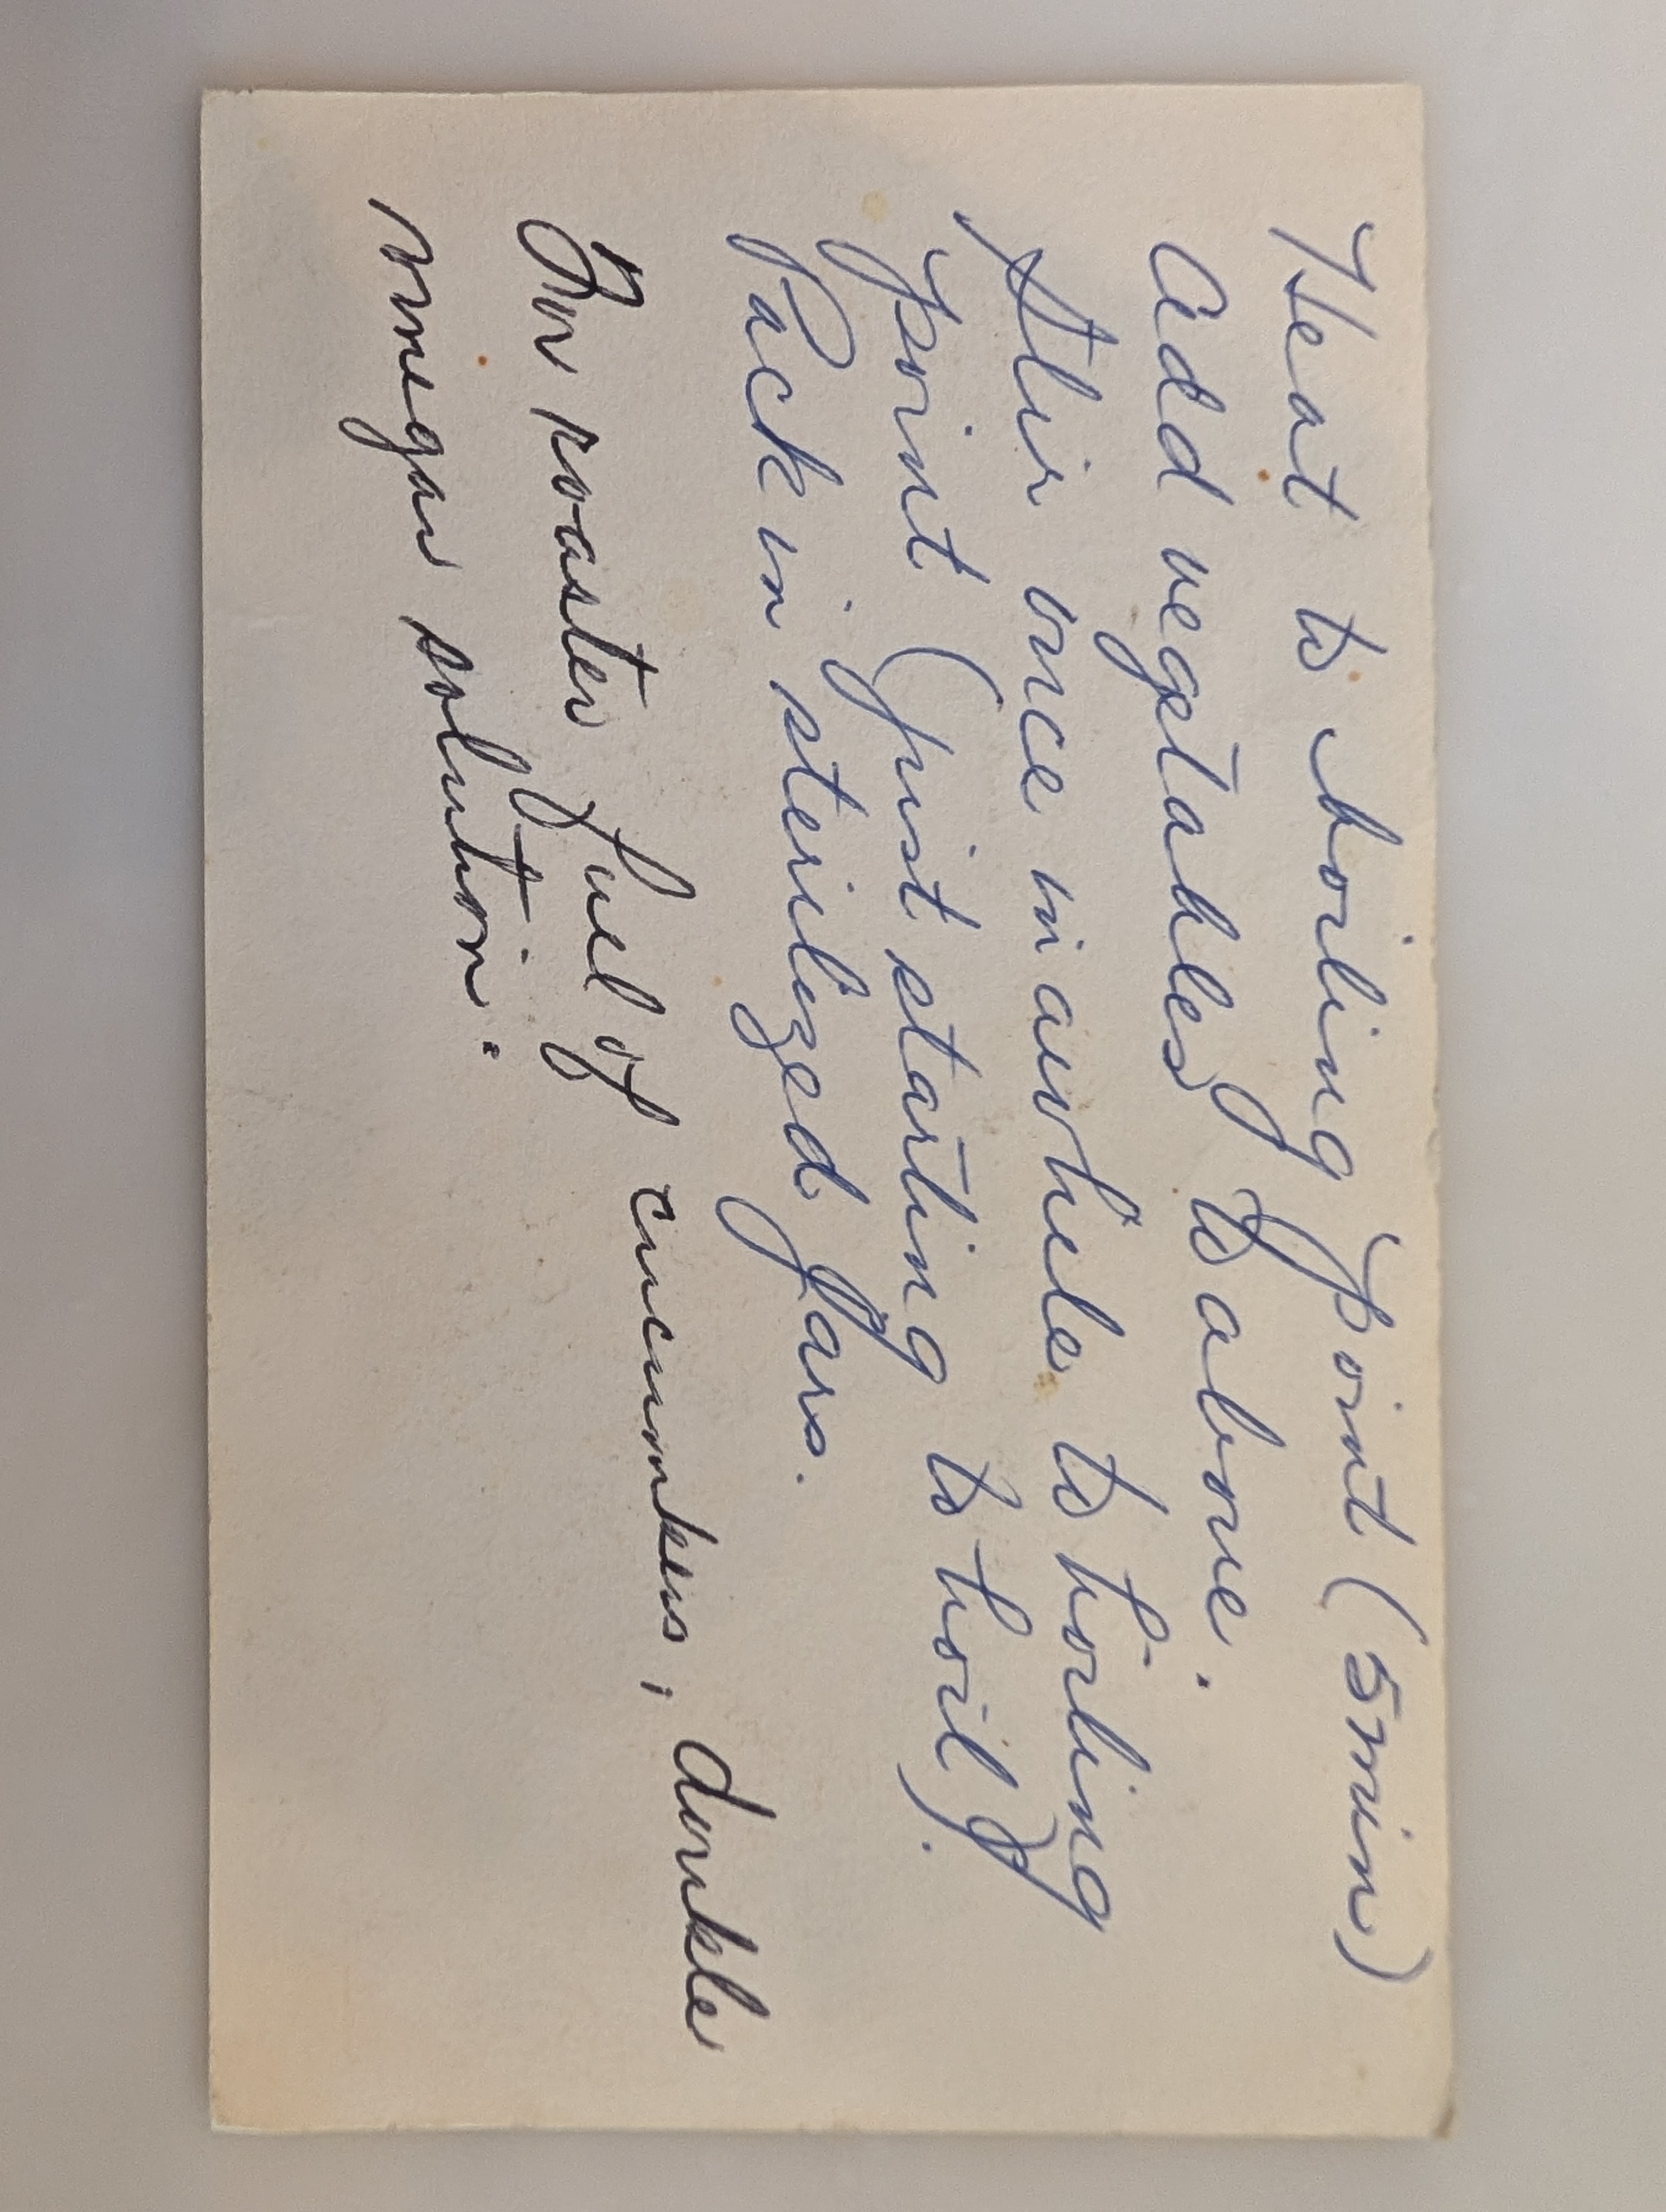 Heat to boiling point (5 min)
Add vegetables to above.
Stir once in awhile to boiling
point (just starting to boil).
Pack in sterilized jars.
For roaster full of cucumbers, double
vinegar solution.